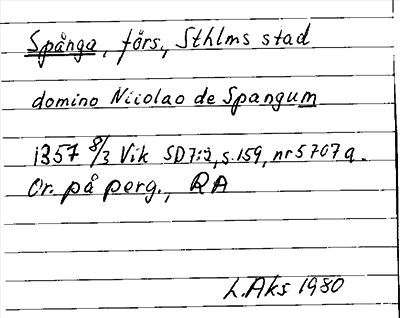 Spånga, förs., Sthlms stad
domino Nicolao de Spangum
1357 8/3 Vik SD7:2, s.159, nr 5707a.
Or. på perg., RA
L.Aks 1980